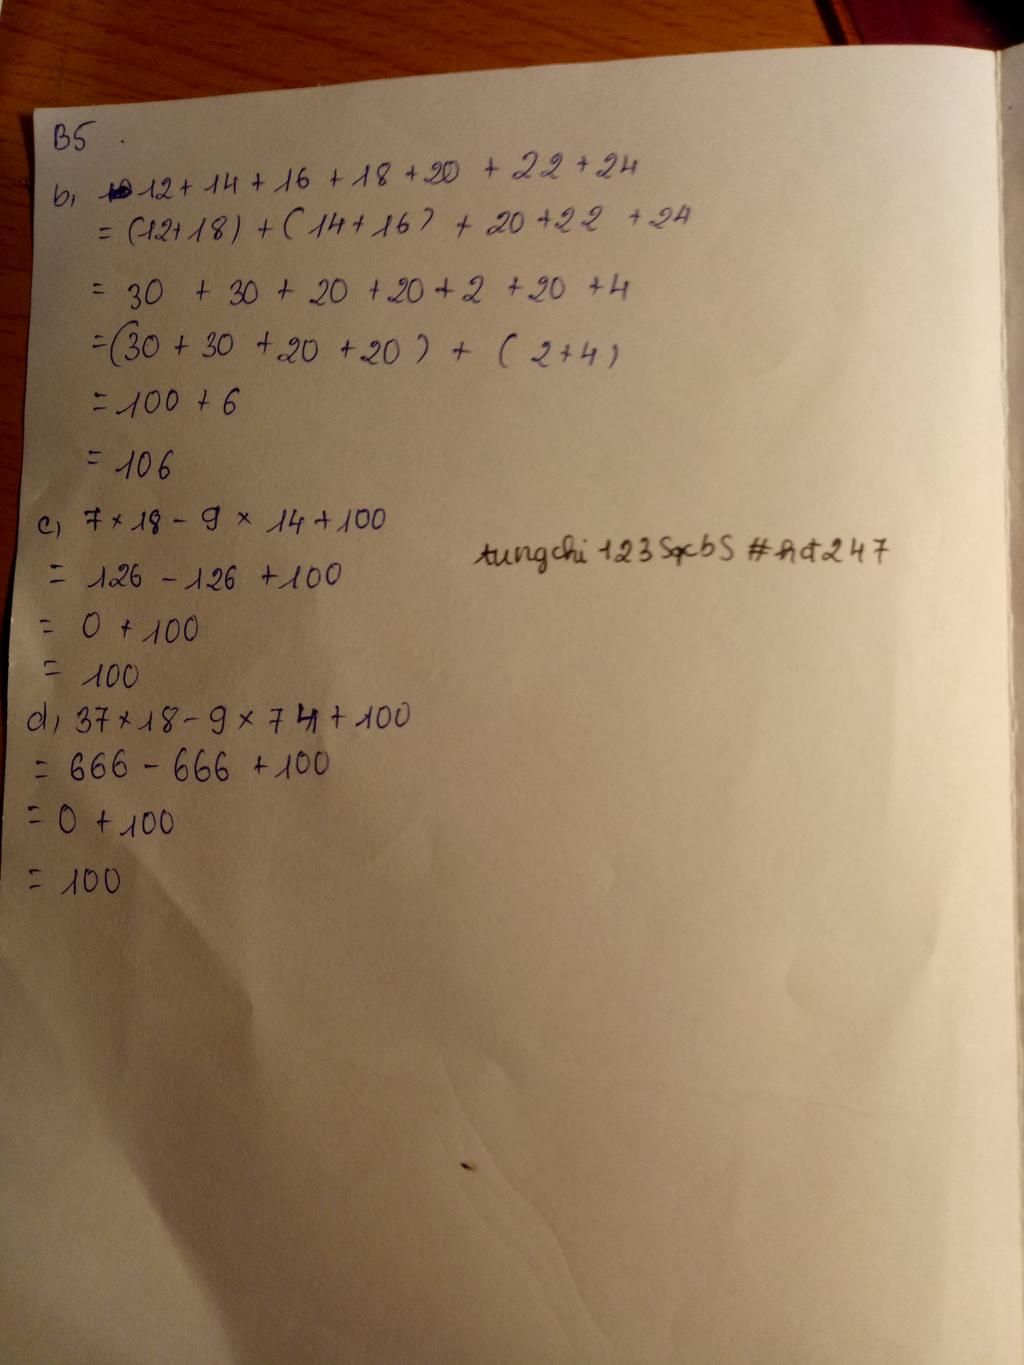 B5
b, 12 + 14 + 16 + 18 + 20 + 22 + 24
= (12 + 18) + (14 + 16) + 20 + 22 + 24
= 30 + 30 + 20 + 20 + 2 + 20 + 4
= (30 + 30 + 20 + 20) + (2 + 4)
= 100 + 6
= 106
c, 7 × 18 - 9 × 14 + 100
= 126 - 126 + 100
= 0 + 100
= 100
tungchi123
d, 37 × 18 - 9 × 74 + 100
= 666 - 666 + 100
= 0 + 100
= 100